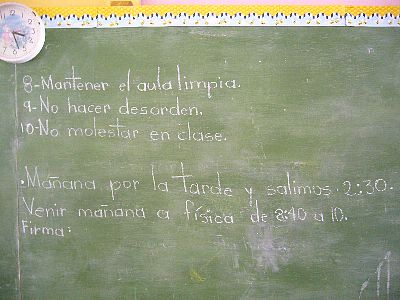 8-Mantener el aula limpia.
9-No hacer desorden.
10-No molestar en clase.
.Mañana por la tarde y salimos. 2:30.
Venir mañana a física de 8:40 a 10.
Firma: